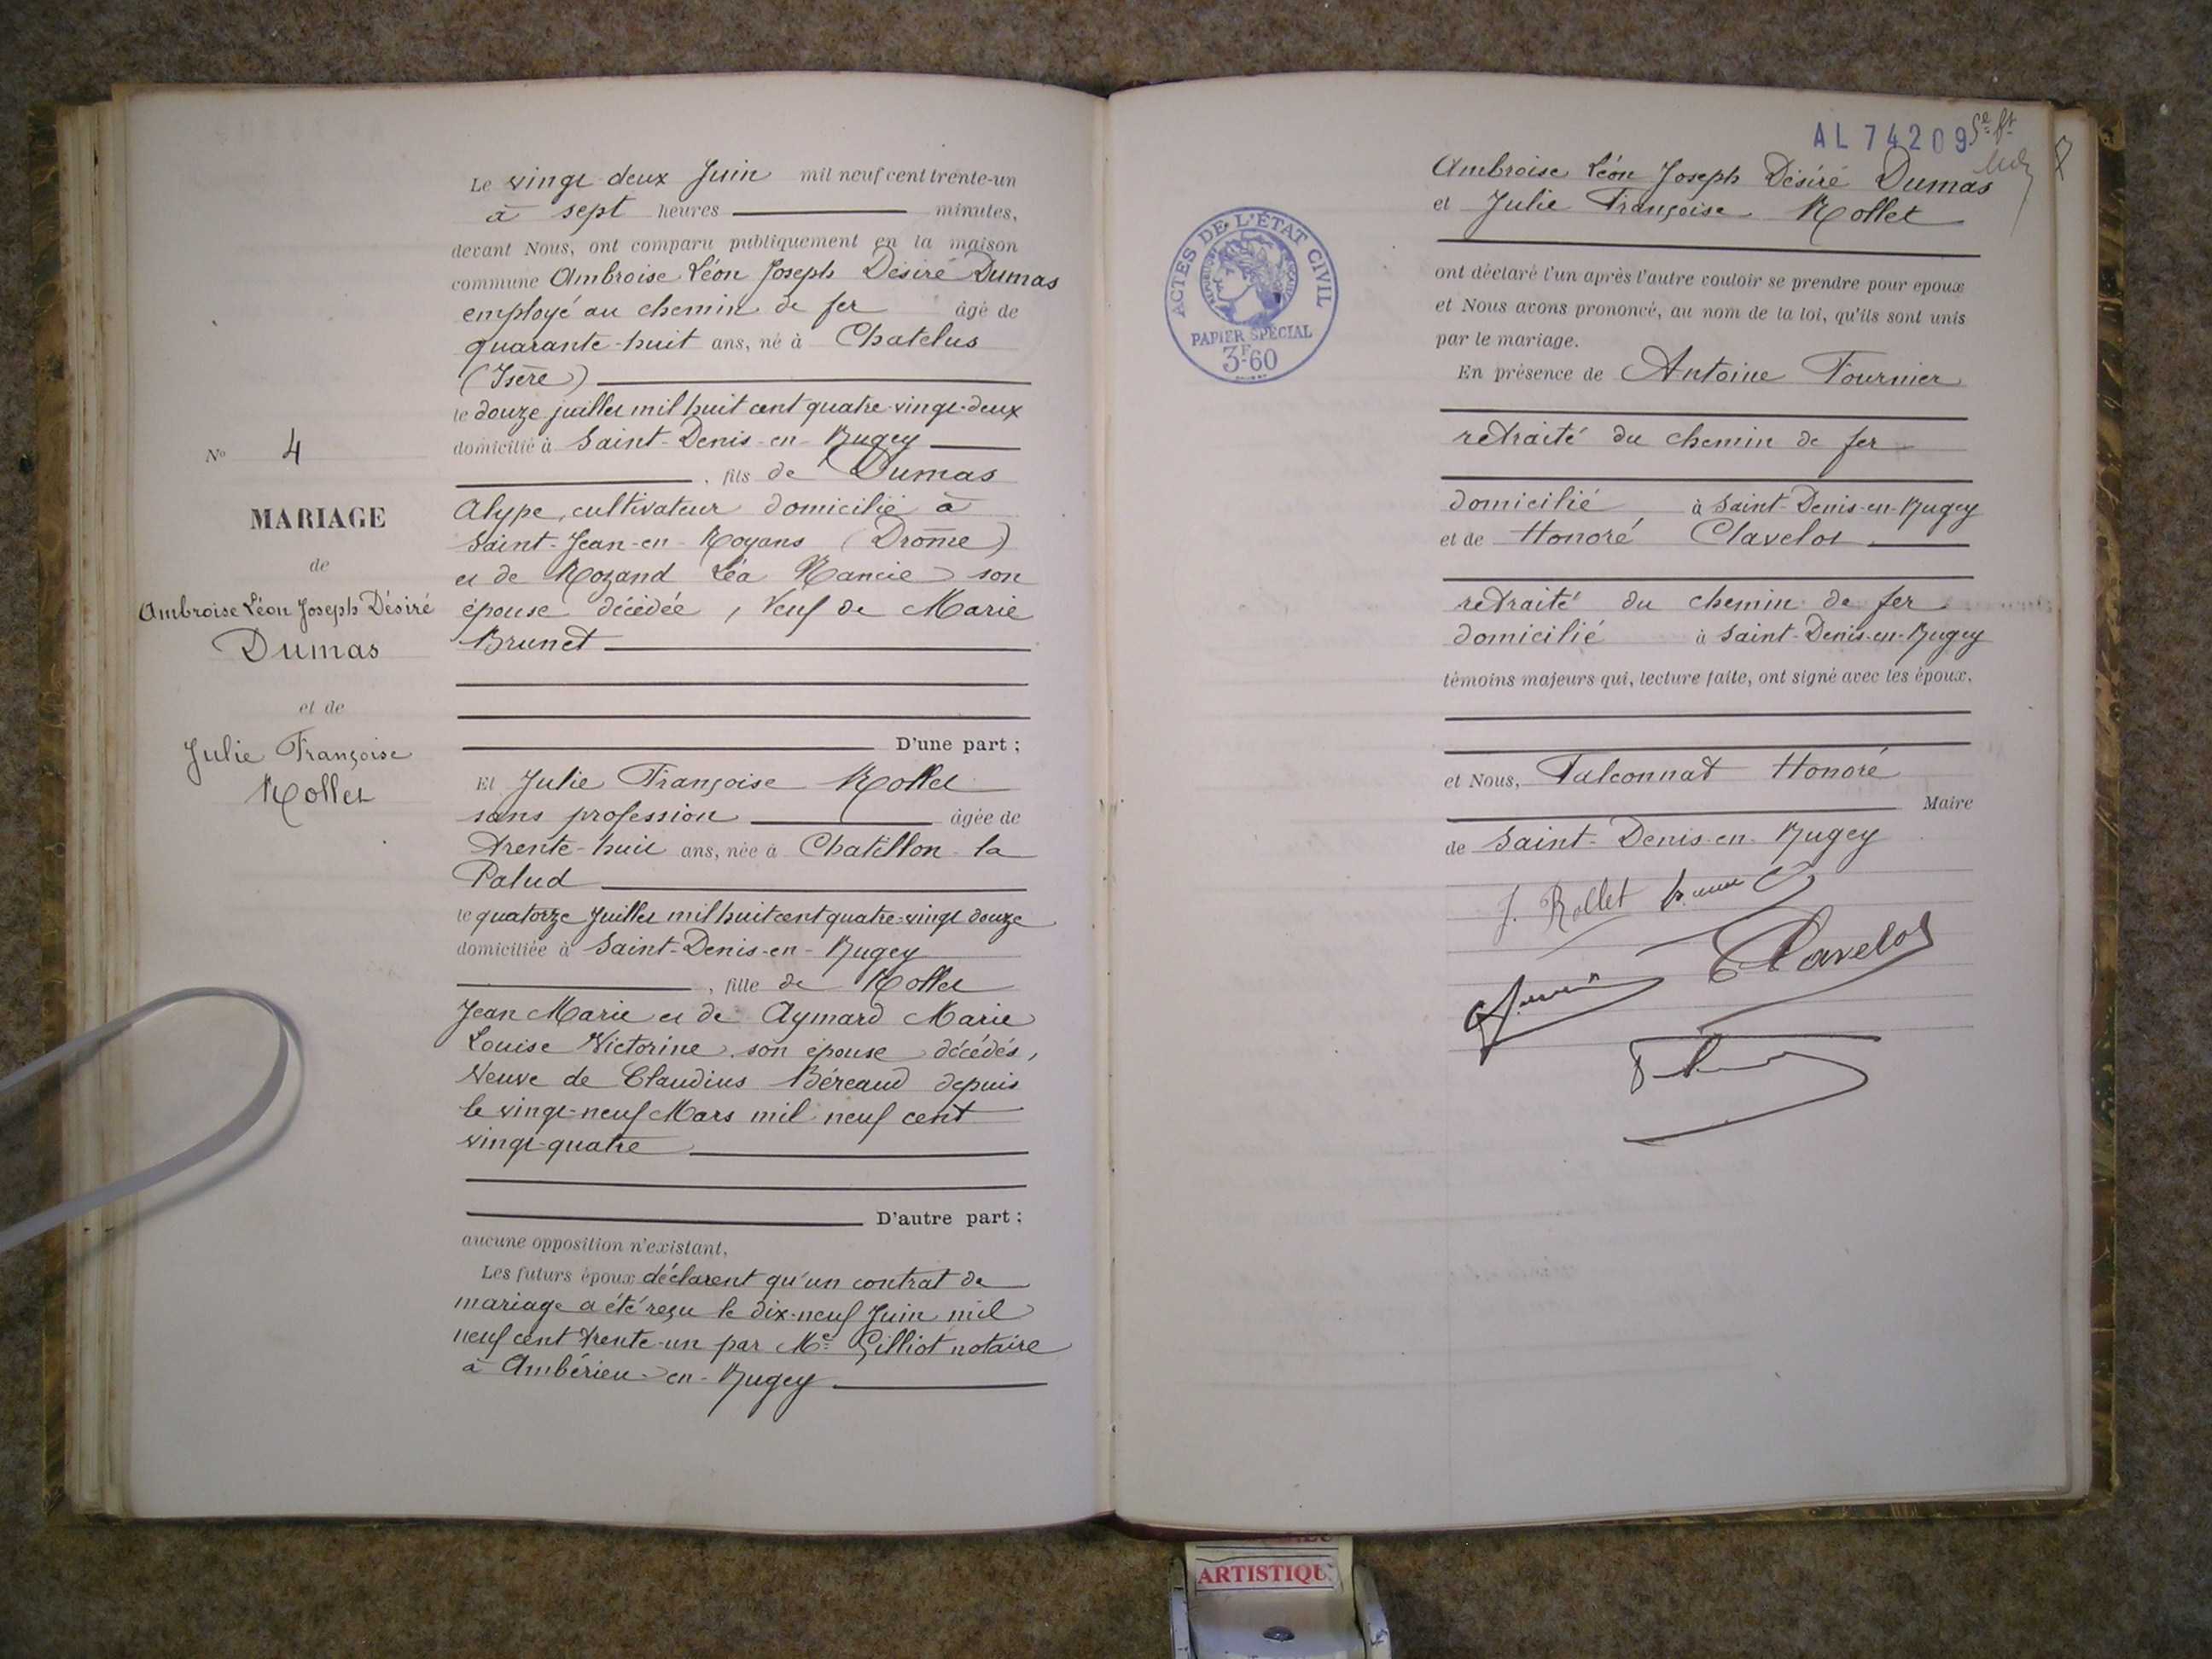 Le vingt-deux Juin mil neuf cent trente-un
à sept heures minutes,
devant Nous, ont comparu publiquement en la maison
commune Ambroise Léon Joseph Désiré Dumas
employé au chemin de fer âgé de
quarante-huit ans, né à Chatelus
(Isère)
le douze juillet mil huit cent quatre-vingt-deux
domicilié à Saint-Denis-en-Bugey
, fils de Dumas
Alype, cultivateur domicilié à
Saint-Jean-en-Royans (Drôme)
et de Rozand Léa Nancie son
épouse décédée, Veuf de Marie
Brunet
D'une part;
Et Julie Françoise Rollet
sans profession âgée de
trente-huit ans, née à Chatillon-la
Palud
le quatorze Juillet mil huit cent quatre-vingt douze
domiciliée à Saint-Denis-en-Bugey
, fille de Rollet
Jean Marie et de Aymard Marie
Louise Victorine son épouse décédés,
Veuve de Claudius Béreaud depuis
le vingt-neuf Mars mil neuf cent
vingt-quatre
D'autre part;
aucune opposition n'existant,
Les futurs époux déclarent qu'un contrat de
mariage a été reçu le dix-neuf Juin mil
neuf cent trente-un par Me Gilliot notaire
à Ambérieu-en-Bugey
No 4
MARIAGE
de
Ambroise Léon Joseph Désiré
Dumas
et de
Julie Françoise
Rollet
AL 74209
Ambroise Léon Joseph Désiré Dumas
et Julie Françoise Rollet
ont déclaré l'un après l'autre vouloir se prendre pour époux
et Nous avons prononcé, au nom de la loi, qu'ils sont unis
par le mariage.
En présence de Antoine Fournier
retraité du chemin de fer
domicilié à Saint-Denis-en-Bugey
et de Honoré Clavelot
retraité du chemin de fer
domicilié à Saint-Denis-en-Bugey
témoins majeurs qui, lecture faite, ont signé avec les époux.
et Nous, Falconnat Honoré
Maire
de Saint-Denis-en-Bugey
J. Rollet
Clavelot
ACTES DE L'ÉTAT CIVIL
PAPIER SPÉCIAL
3F60
ARTISTIQU